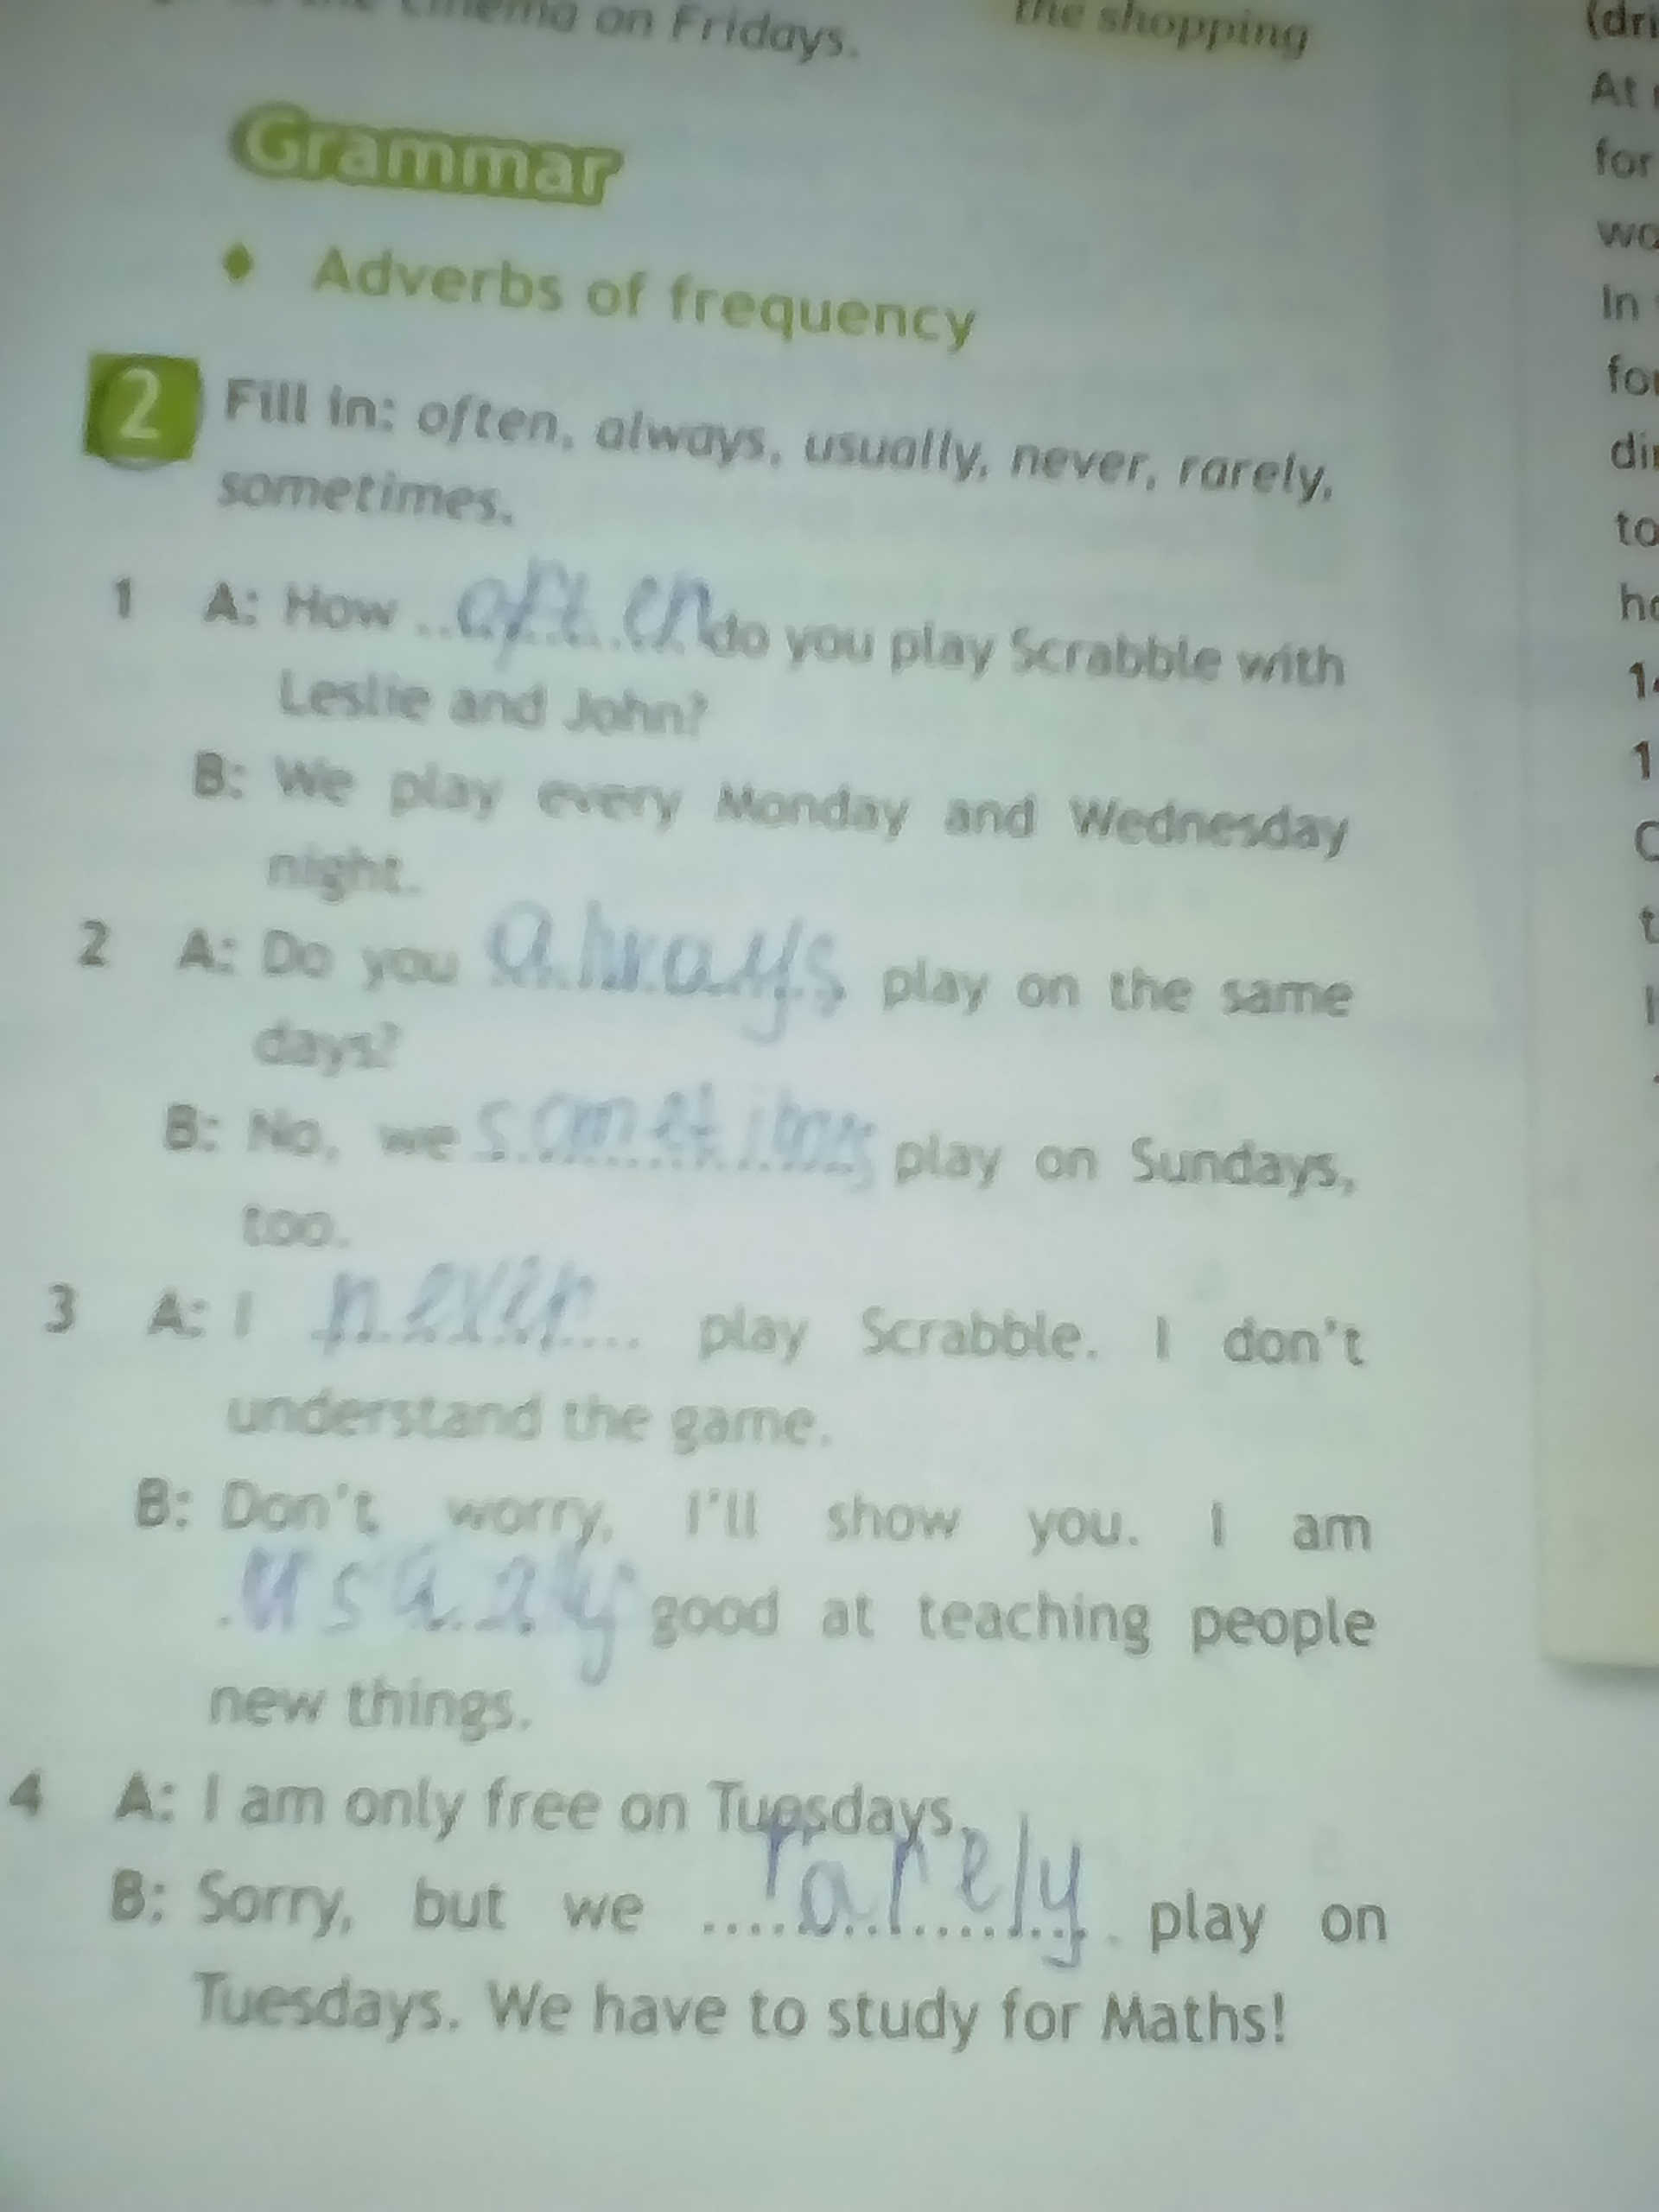 the cinema on Fridays.
the shopping
Grammar
♦ Adverbs of frequency
2 Fill in: often, always, usually, never, rarely,
sometimes.
1 A: How ..often..do you play Scrabble with
Leslie and John?
B: We play every Monday and Wednesday
night.
2 A: Do you always play on the same
days?
B: No, we sometimes play on Sundays,
too.
3 A: I never.... play Scrabble. I don't
understand the game.
B: Don't worry, I'll show you. I am
good at teaching people
new things.
4 A: I am only free on Tuesdays.
B: Sorry, but we ....rarely.. play on
Tuesdays. We have to study for Maths!
(dri
At
for
wo
In
for
din
to
he
1